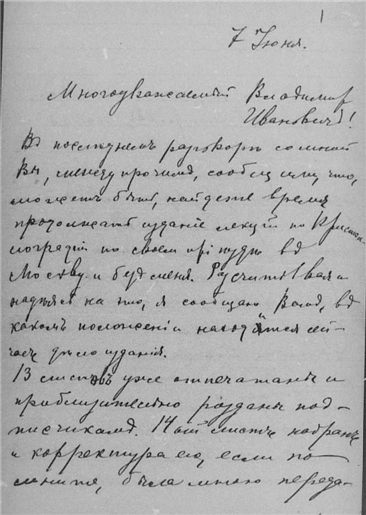 1
7 Июня.
Многоуважаемый Владимир
Ивановичъ!
Въ последнемъ разговоре со мной
Вы, между прочимъ, сообщили, что,
можетъ быть, найдете время
продолжать издание лекций по Кристал-
лографии по своемъ приезде въ
Москву и безъ меня. Расчитывая и
надеясь на это, я сообщаю Вамъ, въ
какомъ положении находится сей-
часъ дело издания.
13 листовъ уже отпечатаны и
приблизительно розданы под-
писчикамъ. 14ый листъ набранъ
и корректура его, если по-
мните, была мною переда-